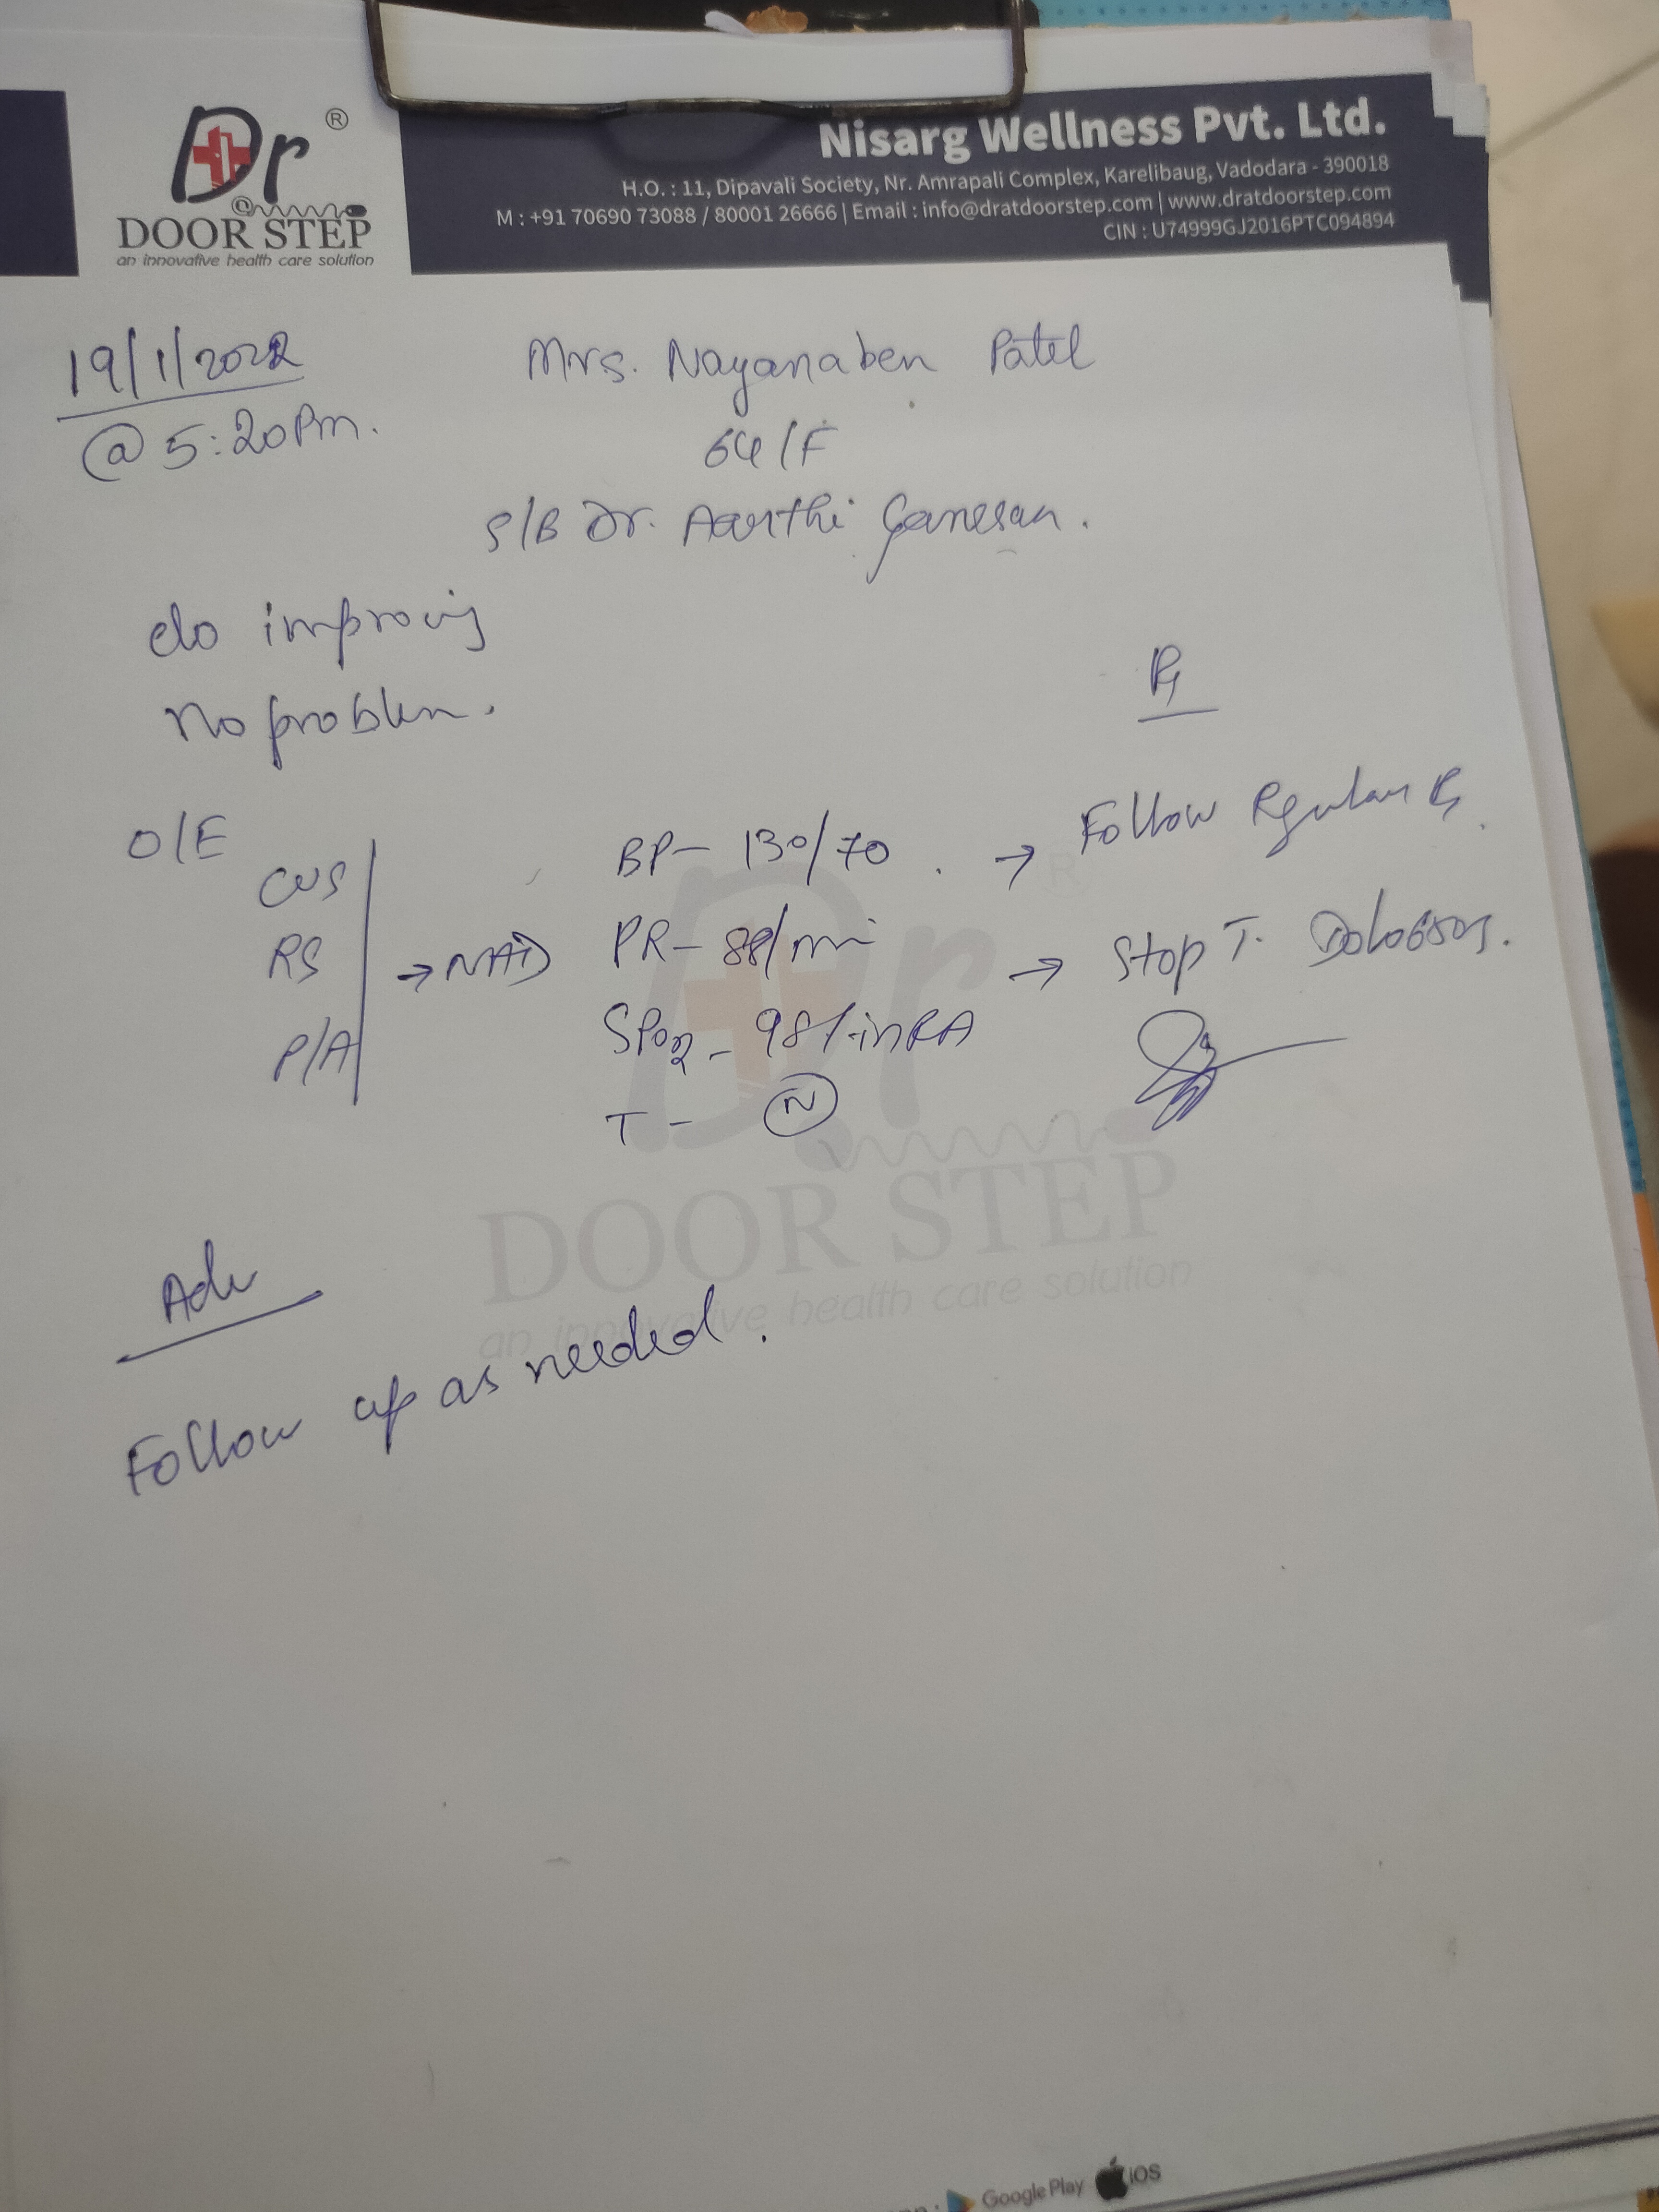 Dr ®
@
DOOR STEP
an innovative health care solution
Nisarg Wellness Pvt. Ltd.
H.O. : 11, Dipavali Society, Nr. Amrapali Complex, Karelibaug, Vadodara - 390018
M : +91 70690 73088 / 80001 26666 | Email : info@dratdoorstep.com | www.dratdoorstep.com
CIN : U74999GJ2016PTC094894
19/1/2022
@ 5:20 Pm.
Mrs. Nayanaben Patel
64/F
S/B Dr. Aarthi Ganesan.
c/o improving
No problem.
O/E
CVS
RS
P/A
→ NAD
BP - 130/70
PR - 88/min
SPO2 - 98% in RA
T - N
Rx
→ Follow Regular Rx
→ Stop T.
Adv
Follow up as needed.
Dr
DOOR STEP
an innovative health care solution
Google Play iOS